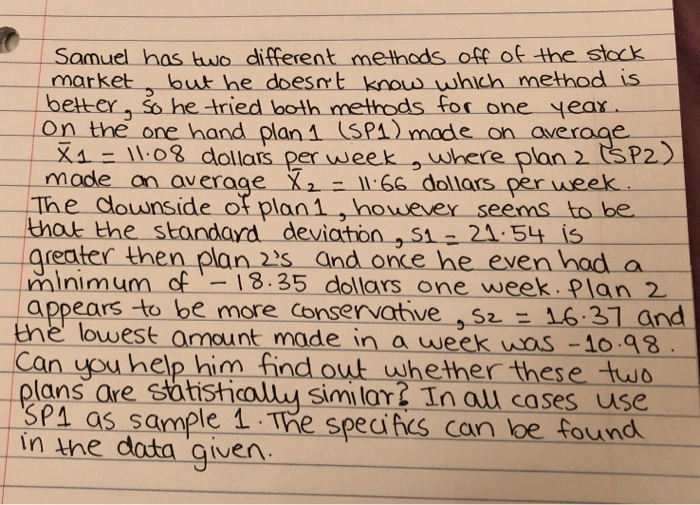 Samuel has two different methods off of the stock
market, but he doesn't know which method is
better, so he tried both methods for one year.
On the one hand plan 1 (SP1) made on average
X̄1 = 11.08 dollars per week, where plan 2 (SP2)
made an average X̄2 = 11.66 dollars per week.
The downside of plan 1, however seems to be
that the standard deviation, S1 = 21.54 is
greater then plan 2's and once he even had a
minimum of -18.35 dollars one week. Plan 2
appears to be more conservative, S2 = 16.37 and
the lowest amount made in a week was -10.98.
Can you help him find out whether these two
plans are statistically similar? In all cases use
SP1 as sample 1. The specifics can be found
in the data given.